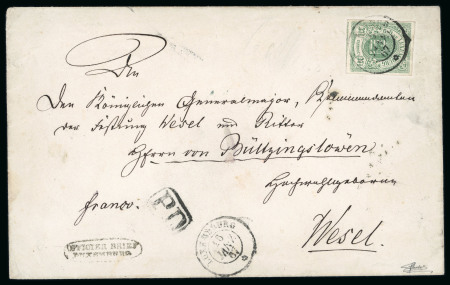 An
Den Königlichen Generalmajor, Kommandanten
der Festung Wesel und Ritter
Herrn von Bültzingslöwen
Hochwohlgeboren
franco.
PD
LUXEMBURG
Wesel.